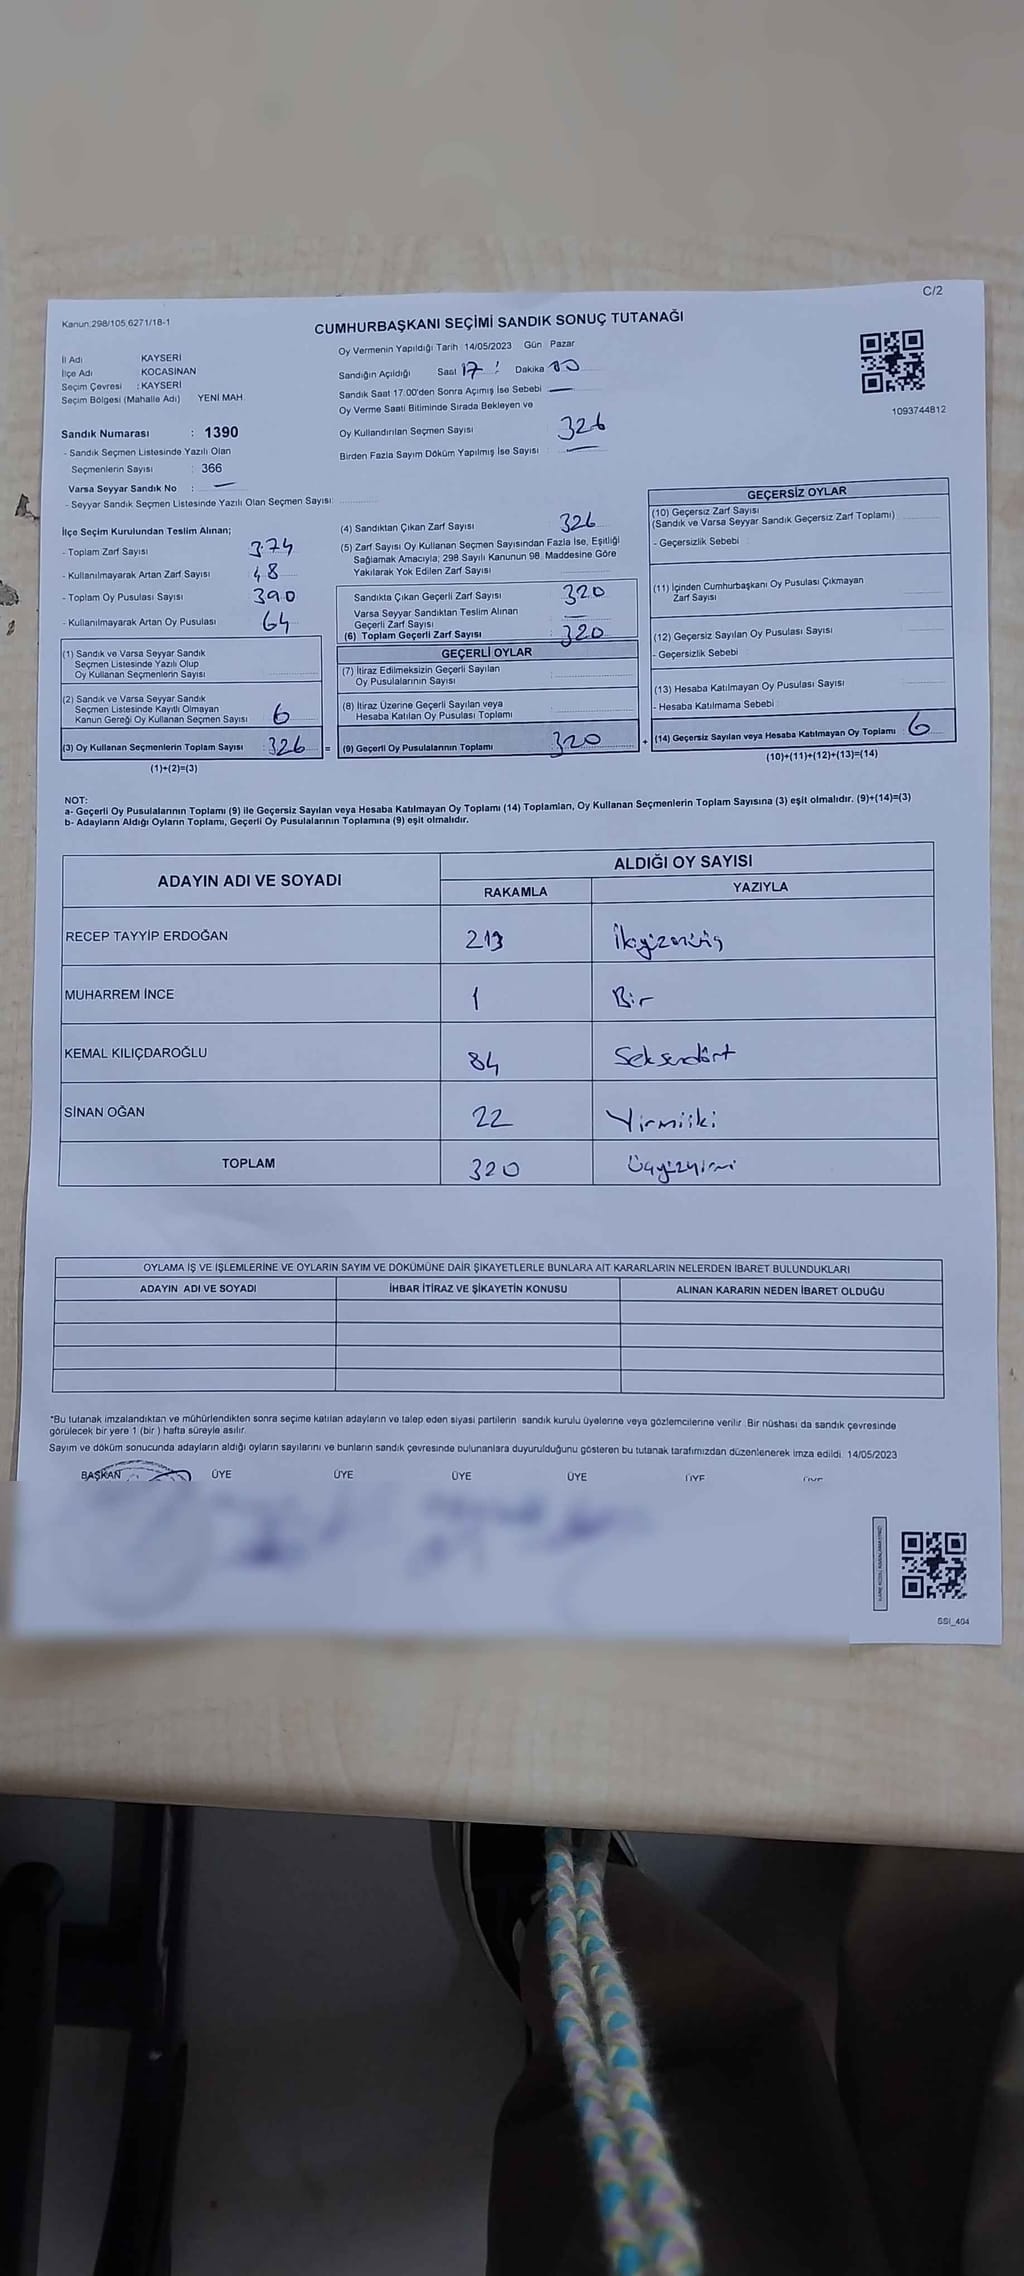 C/2
Kanun:298/105,6271/18-1
CUMHURBAŞKANI SEÇİMİ SANDIK SONUÇ TUTANAĞI
İl Adı KAYSERİ
İlçe Adı KOCASİNAN
Seçim Çevresi : KAYSERİ
Seçim Bölgesi (Mahalle Adı) YENİ MAH.
Sandık Numarası : 1390
- Sandık Seçmen Listesinde Yazılı Olan
Seçmenlerin Sayısı : 366
Varsa Seyyar Sandık No :
- Seyyar Sandık Seçmen Listesinde Yazılı Olan Seçmen Sayısı:
Oy Vermenin Yapıldığı Tarih : 14/05/2023 Gün : Pazar
Sandığın Açıldığı Saat 17 : Dakika 00
Sandık Saat 17:00'den Sonra Açımış İse Sebebi
Oy Verme Saati Bitiminde Sırada Bekleyen ve
Oy Kullandırılan Seçmen Sayısı 326
Birden Fazla Sayım Döküm Yapılmış İse Sayısı
1093744812
İlçe Seçim Kurulundan Teslim Alınan;
- Toplam Zarf Sayısı 374
- Kullanılmayarak Artan Zarf Sayısı 48
- Toplam Oy Pusulası Sayısı 390
- Kullanılmayarak Artan Oy Pusulası 64
(1) Sandık ve Varsa Seyyar Sandık
Seçmen Listesinde Yazılı Olup
Oy Kullanan Seçmenlerin Sayısı
(2) Sandık ve Varsa Seyyar Sandık
Seçmen Listesinde Kayıtlı Olmayan
Kanun Gereği Oy Kullanan Seçmen Sayısı 6
(3) Oy Kullanan Seçmenlerin Toplam Sayısı : 326 =
(1)+(2)=(3)
(4) Sandıktan Çıkan Zarf Sayısı 326
(5) Zarf Sayısı Oy Kullanan Seçmen Sayısından Fazla İse, Eşitliği
Sağlamak Amacıyla; 298 Sayılı Kanunun 98. Maddesine Göre
Yakılarak Yok Edilen Zarf Sayısı
Sandıkta Çıkan Geçerli Zarf Sayısı 320
Varsa Seyyar Sandıktan Teslim Alınan
Geçerli Zarf Sayısı
(6) Toplam Geçerli Zarf Sayısı : 320
GEÇERLİ OYLAR
(7) İtiraz Edilmeksizin Geçerli Sayılan
Oy Pusulalarının Sayısı
(8) İtiraz Üzerine Geçerli Sayılan veya
Hesaba Katılan Oy Pusulası Toplamı
(9) Geçerli Oy Pusulalarının Toplamı 320 +
GEÇERSİZ OYLAR
(10) Geçersiz Zarf Sayısı
(Sandık ve Varsa Seyyar Sandık Geçersiz Zarf Toplamı)
- Geçersizlik Sebebi
(11) İçinden Cumhurbaşkanı Oy Pusulası Çıkmayan
Zarf Sayısı
(12) Geçersiz Sayılan Oy Pusulası Sayısı
- Geçersizlik Sebebi
(13) Hesaba Katılmayan Oy Pusulası Sayısı
- Hesaba Katılmama Sebebi
(14) Geçersiz Sayılan veya Hesaba Katılmayan Oy Toplamı 6
(10)+(11)+(12)+(13)=(14)
NOT:
a- Geçerli Oy Pusulalarının Toplamı (9) ile Geçersiz Sayılan veya Hesaba Katılmayan Oy Toplamı (14) Toplamları, Oy Kullanan Seçmenlerin Toplam Sayısına (3) eşit olmalıdır. (9)+(14)=(3)
b- Adayların Aldığı Oyların Toplamı, Geçerli Oy Pusulalarının Toplamına (9) eşit olmalıdır.
ADAYIN ADI VE SOYADI ALDIĞI OY SAYISI
RAKAMLA YAZIYLA
RECEP TAYYİP ERDOĞAN 213
MUHARREM İNCE 1 Bir
KEMAL KILIÇDAROĞLU 84 Seksendört
SİNAN OĞAN 22 Yirmiiki
TOPLAM 320 Üçyüzyirmi
OYLAMA İŞ VE İŞLEMLERİNE VE OYLARIN SAYIM VE DÖKÜMÜNE DAİR ŞİKAYETLERLE BUNLARA AİT KARARLARIN NELERDEN İBARET BULUNDUKLARI
ADAYIN ADI VE SOYADI İHBAR İTİRAZ VE ŞİKAYETİN KONUSU ALINAN KARARIN NEDEN İBARET OLDUĞU
*Bu tutanak imzalandıktan ve mühürlendikten sonra seçime katılan adayların ve talep eden siyasi partilerin sandık kurulu üyelerine veya gözlemcilerine verilir. Bir nüshası da sandık çevresinde
görülecek bir yere 1 (bir ) hafta süreyle asılır.
Sayım ve döküm sonucunda adayların aldığı oyların sayılarını ve bunların sandık çevresinde bulunanlara duyurulduğunu gösteren bu tutanak tarafımızdan düzenlenerek imza edildi. 14/05/2023
BAŞKAN ÜYE ÜYE ÜYE ÜYE ÜYE ÜYE
SSI_404